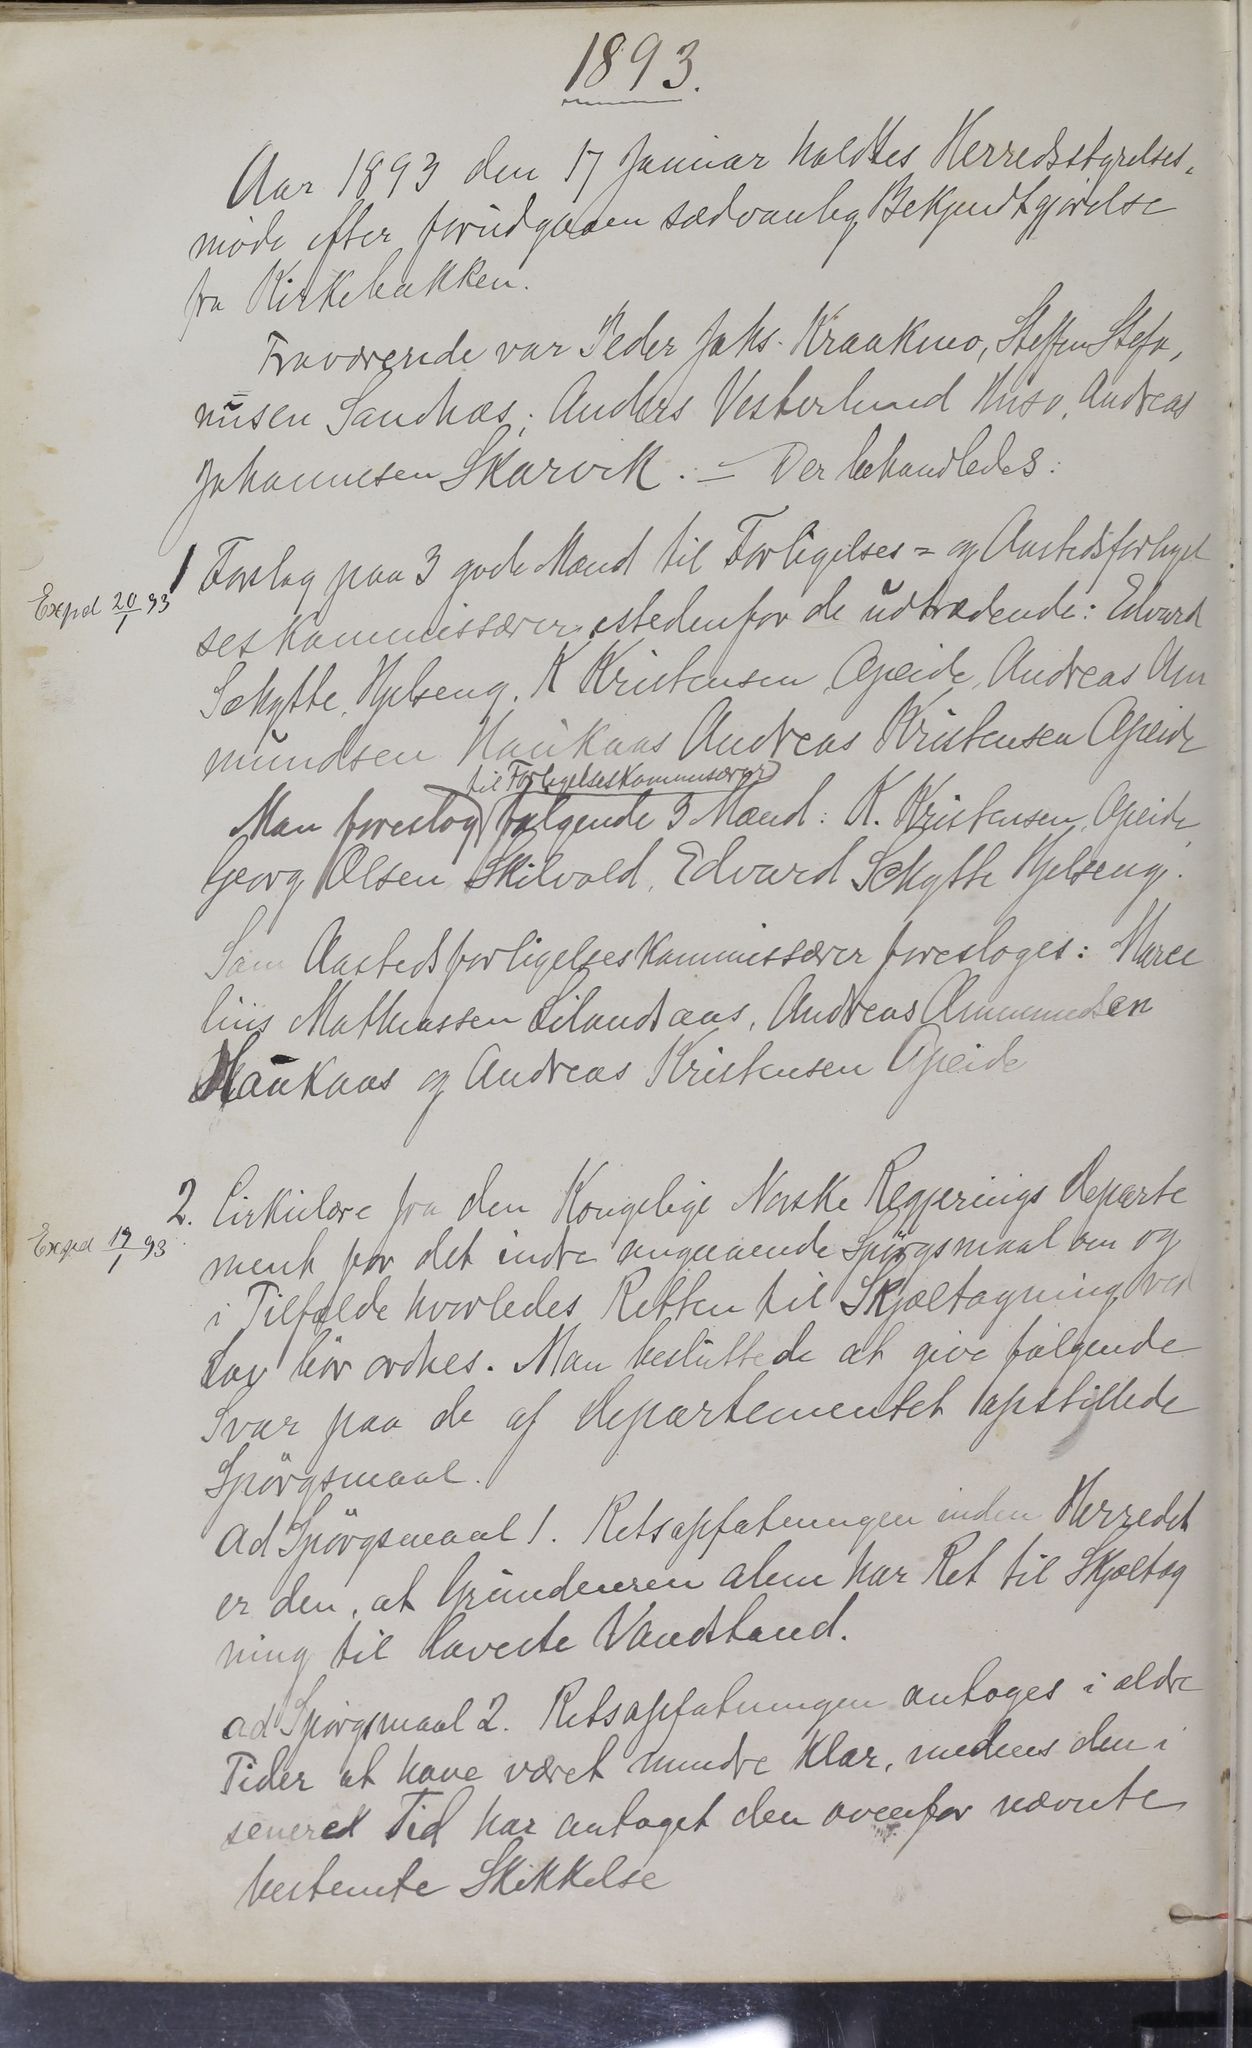 1893.
Aar 1893 den 17 Januar holdtes Herredsstyrelses-
møde efter forudgaaen sædvanlig Bekjendtgjørelse
fra Kirkebakken.
Fraværende var Peder Johs. Kraakmo, Steffen Stefa,
nusen Sandnæs, Anders Vesterlund Muso, Andreas
Johannesen Skarvik. – Der behandledes:
1 Forslag paa 3 gode Mænd til Forligelses- og Aastedsforligel
Exped 20/1 93
seskommissærer istedenfor de udtrædende: Edvard
Schytte, Hjelseng, K Kristensen Opeide, Andreas Am
mundsen Haukaas Andreas Kristensen Opeide
til Forligelseskommissærer
Man foreslog følgende 3 Mænd: K. Kristensen, Opeide,
Georg Olsen Skilvold, Edvard Schytte Hjelseng.
Som Aastedsforligelseskommissærer foresloges: Marce
lius Mathiassen Lilandsaas, Andreas Ammundsen
Haukaas og Andreas Kristensen Opeide
2. Cirkulære fra den Kongelige Norske Regjerings Departe
Exped 19/1 93
ment for det indre angaaende Spørgsmaal om og
i Tilfælde hvorledes Retten til Skjæltagning ved
Lov bør ordnes. Man besluttede at give følgende
Svar paa de af Departementet opstillede
Spørgsmaal.
ad Spørgsmaal 1. Retsopfatningen inden Herredet
er den, at Grundeieren alene har Ret til Skjæltag
ning til laveste Vandstand.
ad Spørgsmaal 2. Retsopfatningen antages i ældre
Tider at have været mindre klar, medens den i
senere Tid har antaget den ovenfor nævnte
bestemte Skikkelse